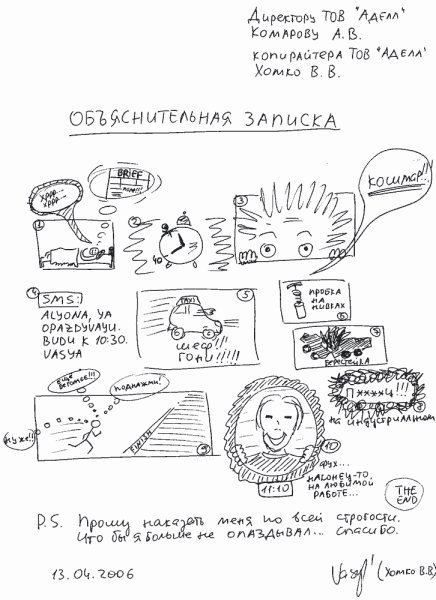 Директору ТОВ "Аделл"
Комарову А.В.
копирайтера ТОВ "Аделл"
Хомко В.В.
ОБЪЯСНИТЕЛЬНАЯ ЗАПИСКА
BRIEF
хррр...
хррр...
1
2
3
КОШМАР!!!
4
SMS:)
ALYONA, YA
OPAZDYVAYU.
BUDU K 10:30.
VASYA
5
TAXI
ШЕФ!!
ГОНИ!!!!!
ПРОБКА
НА
НИВКАХ
6
БЕРЕСТЕЙКА
ЕЩЁ
ПОДНАЖМИ!
НУЖЕ!!
FINISH
9
на индустриальном
10
11:10
ФУХ...
НАКОНЕЦ-ТО,
НА ЛЮБИМОЙ
РАБОТЕ...
THE
END
P.S. Прошу наказать меня по всей строгости.
Что бы я больше не опаздывал... спасибо.
13.04.2006
(Хомко В.В)